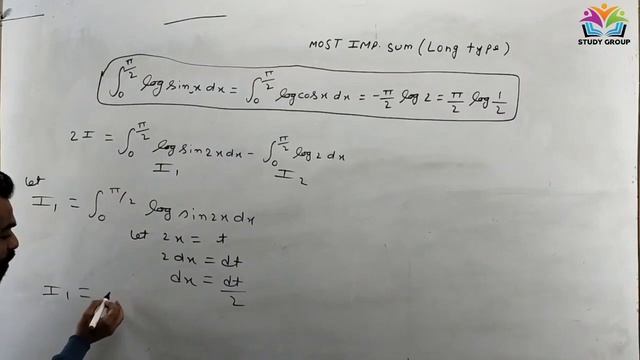 STUDY GROUP
MOST IMP. SUM (Long type)
∫₀^{π/2} log sin x dx = ∫₀^{π/2} log cos x dx = -π/2 log 2 = π/2 log 1/2
2I = ∫₀^{π/2} log sin 2x dx - ∫₀^{π/2} log 2 dx
I₁ I₂
let
I₁ = ∫₀^{π/2} log sin 2x dx
let 2x = t
2 dx = dt
dx = dt/2
I₁ =